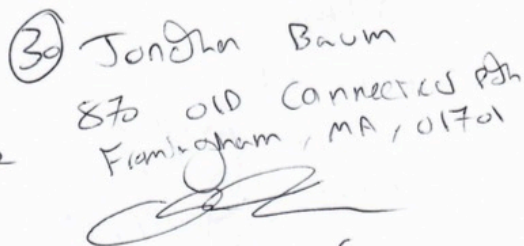 30 Jonathan Baum
870 Old Connecticut Path
Framingham, MA, 01701